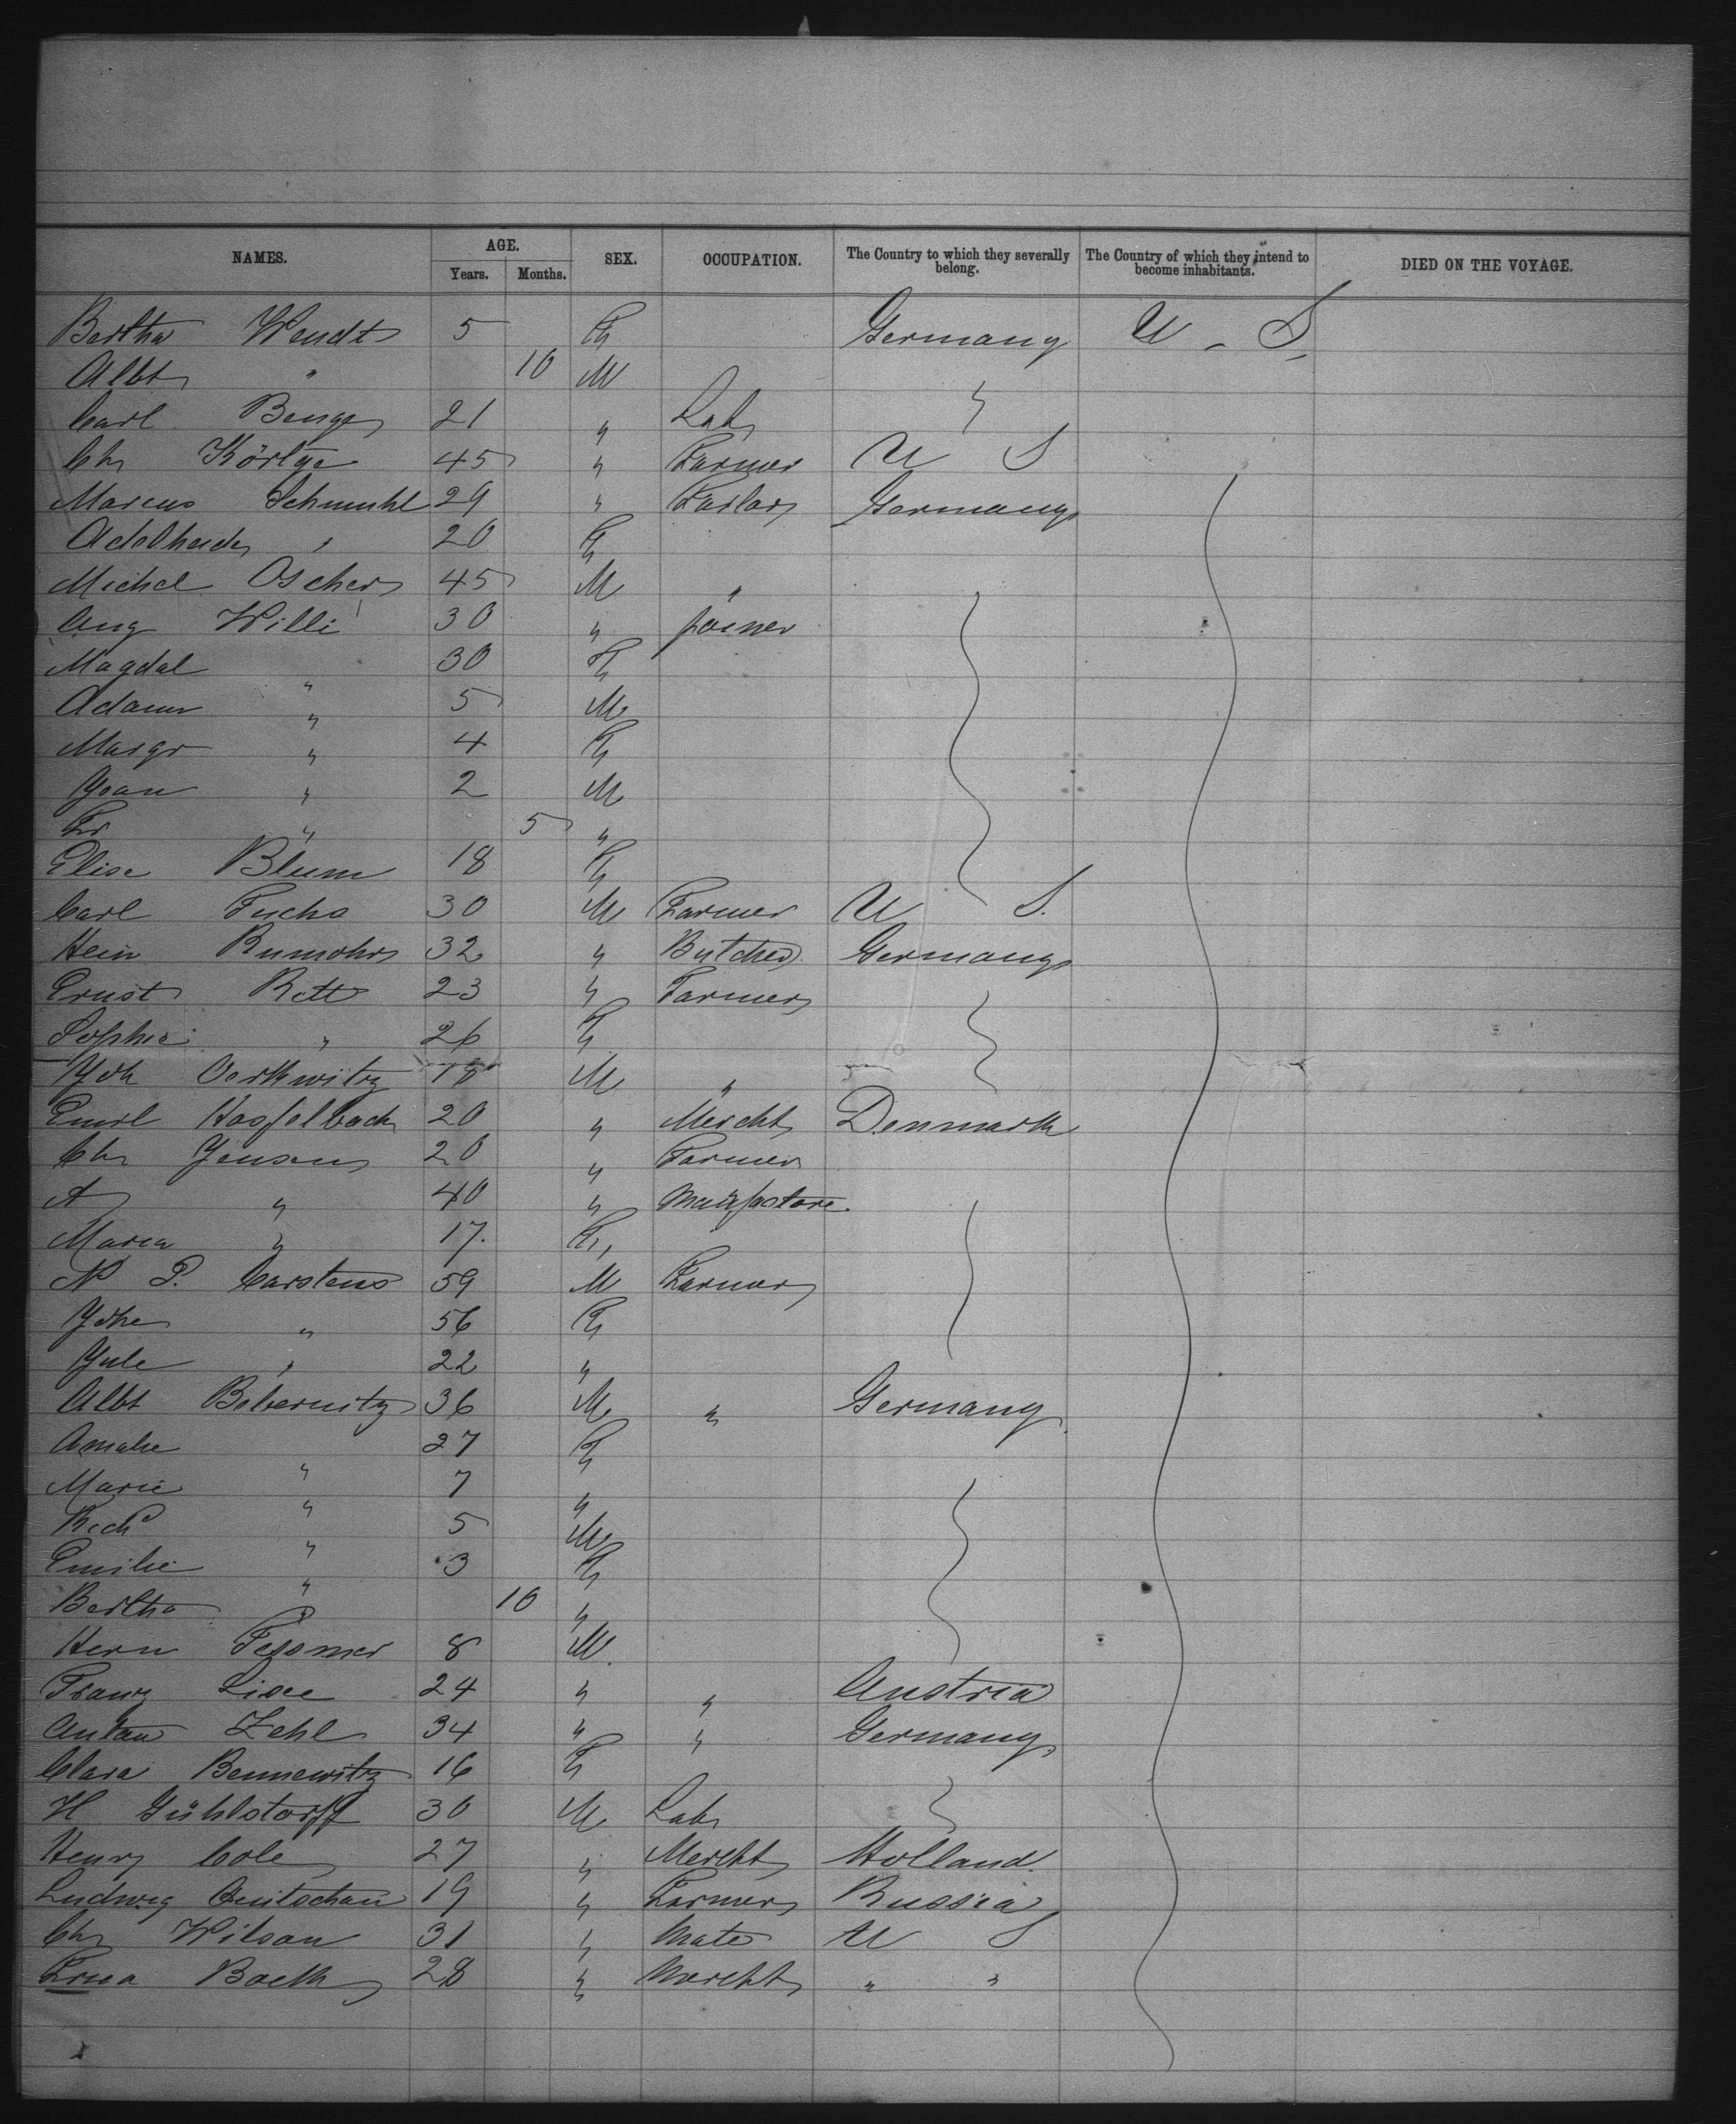 NAMES. AGE. SEX. OCCUPATION. The Country to which they severally belong. The Country of which they intend to become inhabitants. DIED ON THE VOYAGE.
Years. Months.
Bertha Wendt 5 F Germany U. S.
Albt " 10 M
Carl Benge 21 " Lab
Chr Körtge 45 " Farmer U S
Marcus Schmuhl 29 " Germany
Adelheid " 20 F
Michel Oscher 45 M "
Aug Willi 30 " joiner
Magdal " 30 F
Adam " 5 M
Margr " 4 F
Joan " 2 M
Fr " 5 "
Elise Blum 18 F
Carl Fuchs 30 M Farmer U S.
Hein Rumohr 32 " Butcher Germany
Ernst Rett 23 " Farmer
Sophie " 26 F
Joh 18 M "
Emil Hasselbach 20 " Mercht Denmark
Chr Jensen 20 " Farmer
A " 40 "
Maria " 17. F
N P. Carstens 59 M Farmer
Johe " 56 F
Jule " 22 "
Albt Bebernitz 36 M " Germany
Amalie " 27 F
Marie " 7 "
Richd " 5 M
Emilie " 3 F
Bertha " 10 "
Herm Fessmer 8 M
Franz 24 " " Austria
Anton Zehl 34 " " Germany
Clara Bennewitz 16 F
H Gühlstorff 30 M Lab
Henry Cole 27 " Mercht Holland
Ludwig 19 " Farmer Russia
Chr Wilson 31 " Mate U S
28 " Mercht " "